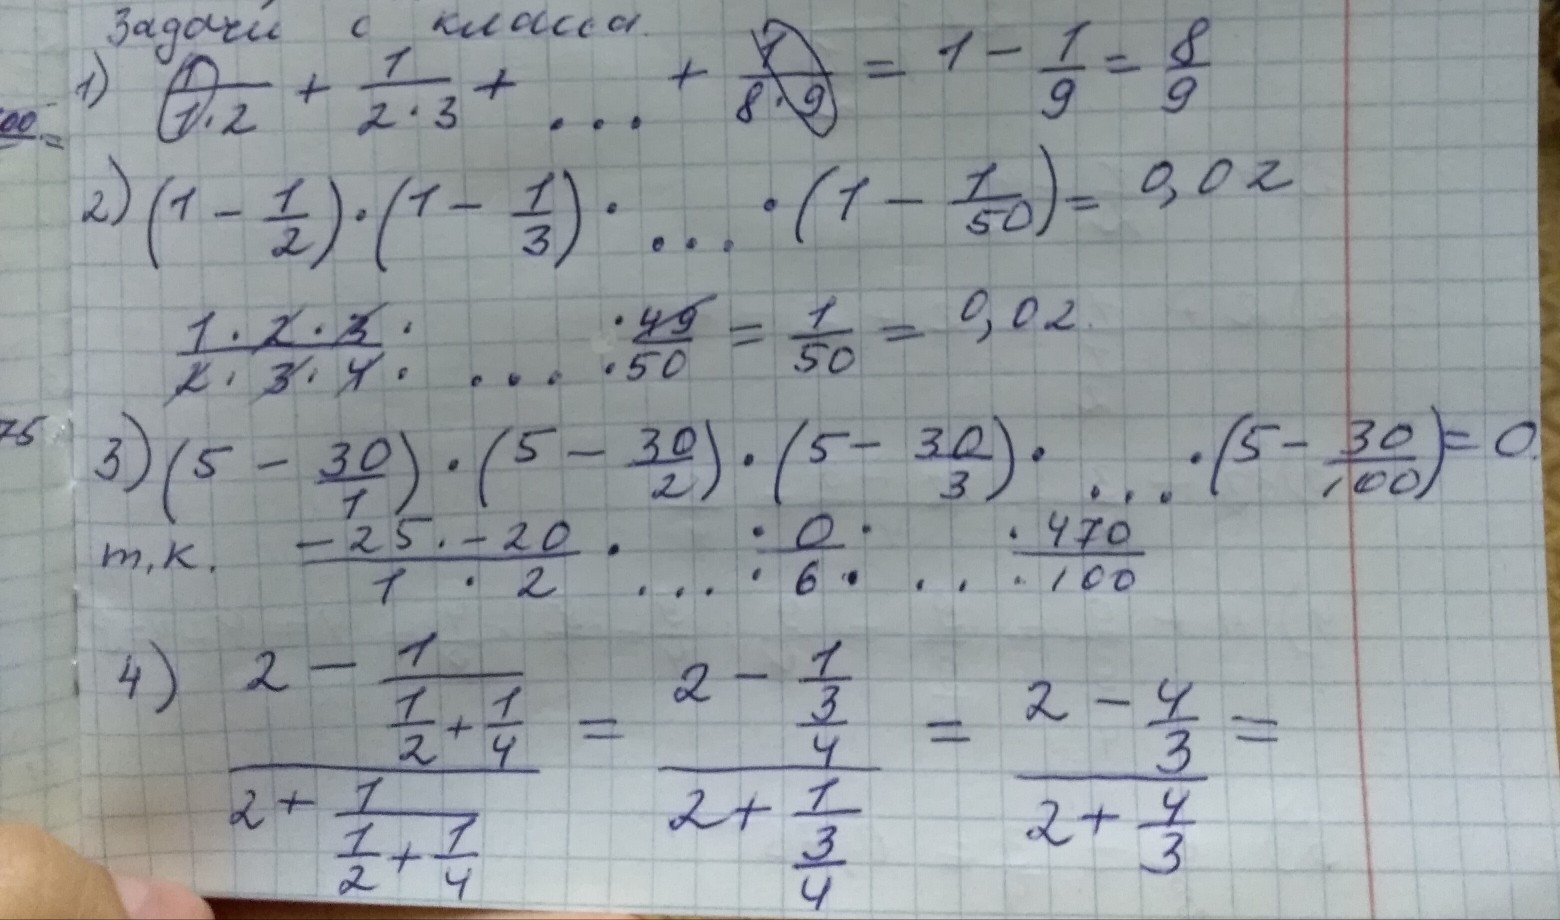 Задачи с класса.
1) 1/(1·2) + 1/(2·3) + ... + 1/(8·9) = 1 - 1/9 = 8/9
2) (1 - 1/2)·(1 - 1/3)· ... ·(1 - 1/50) = 0,02
(1·2·3· ... ·49)/(2·3·4· ... ·50) = 1/50 = 0,02.
3) (5 - 30/1)·(5 - 30/2)·(5 - 30/3)· ... ·(5 - 30/100) = 0.
т.к. (-25·-20)/(1·2)· ... ·0/6· ... ·470/100
4) (2 - 1/(1/2 + 1/4))/(2 + 1/(1/2 + 1/4)) = (2 - 1/(3/4))/(2 + 1/(3/4)) = (2 - 4/3)/(2 + 4/3) =